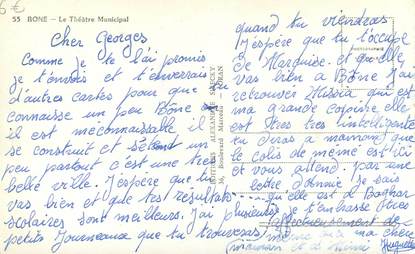 6 €
55 BONE - Le Théâtre Municipal
Cher Georges
Comme je te l'ai promis
je t'envois et t'enverrais
d'autres cartes pour que tu
connaisse un peu Bône
il est meconnaissable, il
se construit et s'étend un
peu partout c'est une très
belle ville. J'éspère que tu
vas bien et que tes résultats
scolaires sont meilleurs. J'ai
petits journeaux que tu trouveras
quand tu viendras
J'éspère que tu t'occupe
de Marquise et qu'elle
vas bien a Bône J'ai
retrouver qui est
ma grande copaine elle
est très très intelligente
tu diras a maman que
le colis de mémé est ici
et vous attend. Par une
lettre d'Annie je sais
qu'elle est a
je t'embrasse très
affectueusement de
même que ma chère
maman et a mémé Huguette